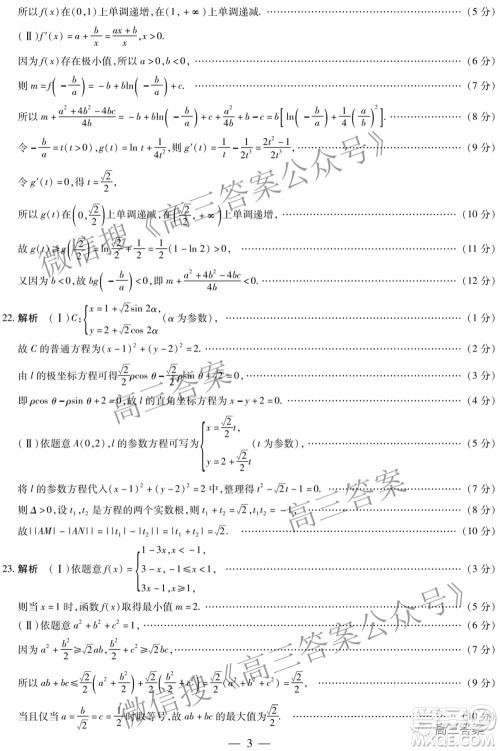 所以 f(x) 在(0,1)上单调递增,在(1,+∞)上单调递减. (5 分)
(Ⅱ) f′(x) = a + b/x = (ax+b)/x, x>0.
因为 f(x) 存在极小值,所以 a>0, b<0, (6 分)
则 m = f(-b/a) = -b + bln(-b/a) + c. (7 分)
所以 m + (a²+4b²-4bc)/4b = -b + bln(-b/a) + c + a²/4b + b - c = b[ln(-b/a) + 1/4(a/b)²] (8 分)
令 -b/a = t(t>0), g(t) = ln t + 1/4t², 则 g′(t) = 1/t - 1/2t³ = (2t²-1)/2t³, (9 分)
令 g′(t) = 0, 得 t = √2/2,
所以 g(t) 在(0, √2/2)上单调递减,在(√2/2, +∞)上单调递增, (10 分)
故 g(t) ≥ g(√2/2) = ln √2/2 + 1/2 = 1/2(1-ln 2)>0. (11 分)
又因为 b<0, 故 bg(-b/a)<0, 即 m + (a²+4b²-4bc)/4b <0. (12 分)
22. 解析 (Ⅰ) C: { x = 1+√2sin 2α, y = 2+√2cos 2α, (α 为参数), (1 分)
故 C 的普通方程为 (x-1)² + (y-2)² = 2. (2 分)
由 l 的极坐标方程可得 √2/2 ρcos θ - √2/2 ρsin θ + √2 = 0, (3 分)
即 ρcos θ - ρsin θ + 2 = 0. 故 l 的直角坐标方程为 x-y+2=0. (4 分)
(Ⅱ) 依题意 A(0,2), l 的参数方程可写为 { x = √2/2 t, y = 2+√2/2 t (t 为参数), (5 分)
将 l 的参数方程代入 (x-1)² + (y-2)² = 2 中, 整理得 t² - √2t - 1 = 0. (7 分)
则 Δ>0, 设 t₁, t₂ 是方程的两个实数根, 则 t₁+t₂=√2, t₁t₂=-1<0, (9 分)
故 ||AM| - |AN|| = ||t₁| - |t₂|| = |t₁+t₂| = √2. (10 分)
23. 解析 (Ⅰ) 依题意 f(x) = { 1-3x, x<-1, 3-x, -1≤x<1, 3x-1, x≥1, (3 分)
则当 x=1 时, 函数 f(x) 取得最小值 m=2. (5 分)
(Ⅱ) 依题意 a²+b²+c²=1. (6 分)
因为 a² + b²/2 ≥ √2ab, b²/2 + c² ≥ √2bc, (7 分)
所以 ab+bc ≤ √2/2(a² + b²/2) + √2/2(b²/2 + c²) = √2/2(a²+b²+c²) = √2/2, (9 分)
当且仅当 a = b/√2 = c 时取等号, 故 ab+bc 的最大值为 √2/2. (10 分)
— 3 —
微信搜《高三答案公众号》
高三答案
高三答案
微信搜《高三答案公众号》
高三答案